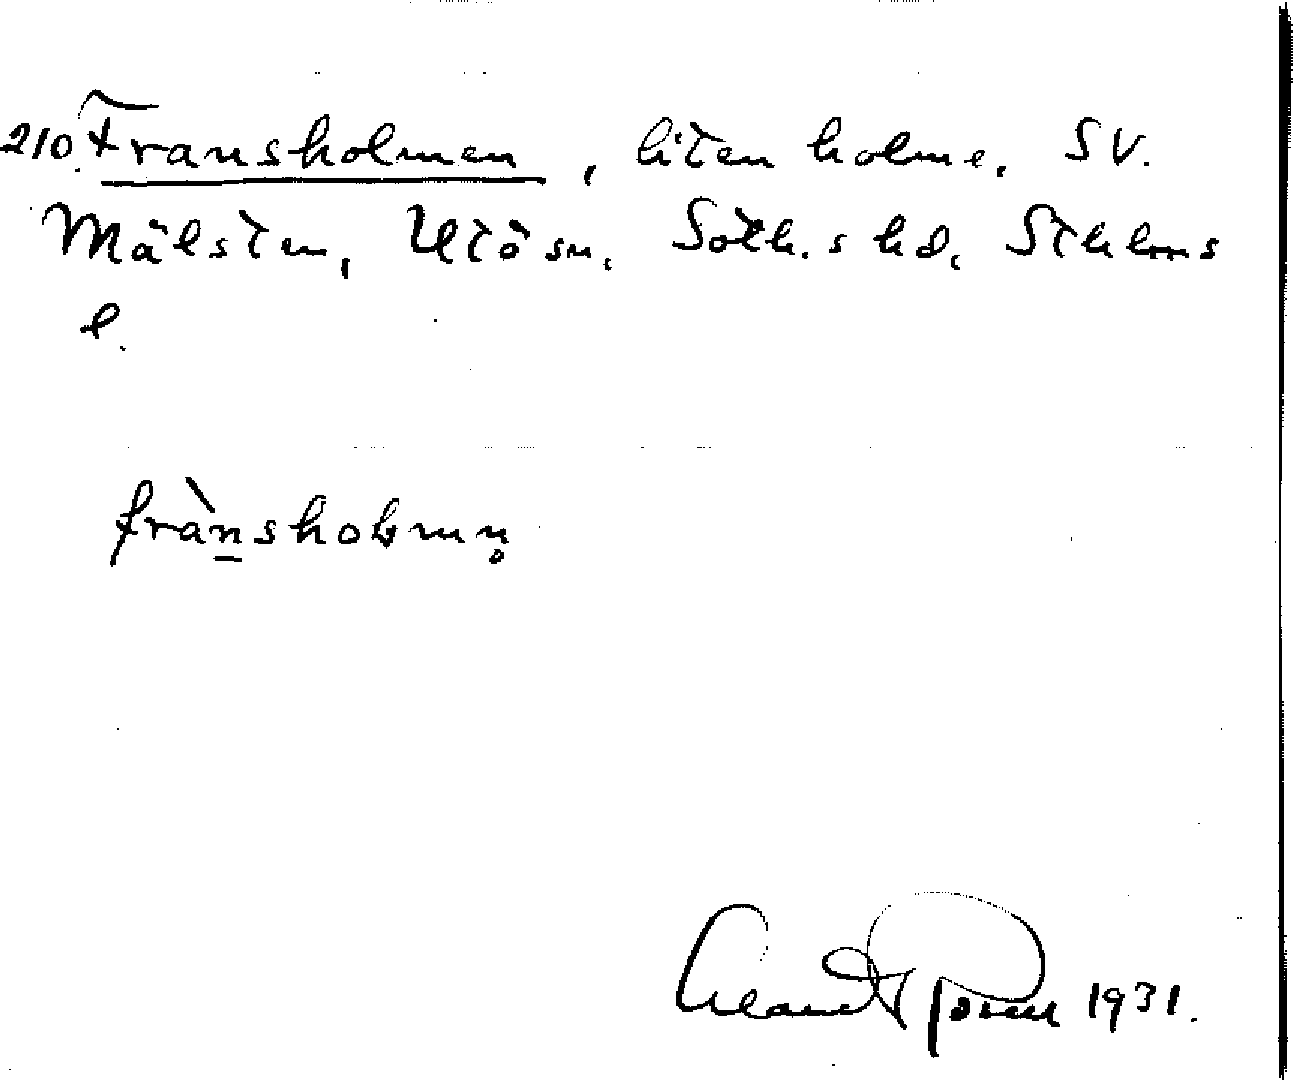 210. Fransholmen, liten holme, SV.
Mälsten, Utö sn, Soth.s hd, Sthlms
l.
frànsholmn̥
1931.